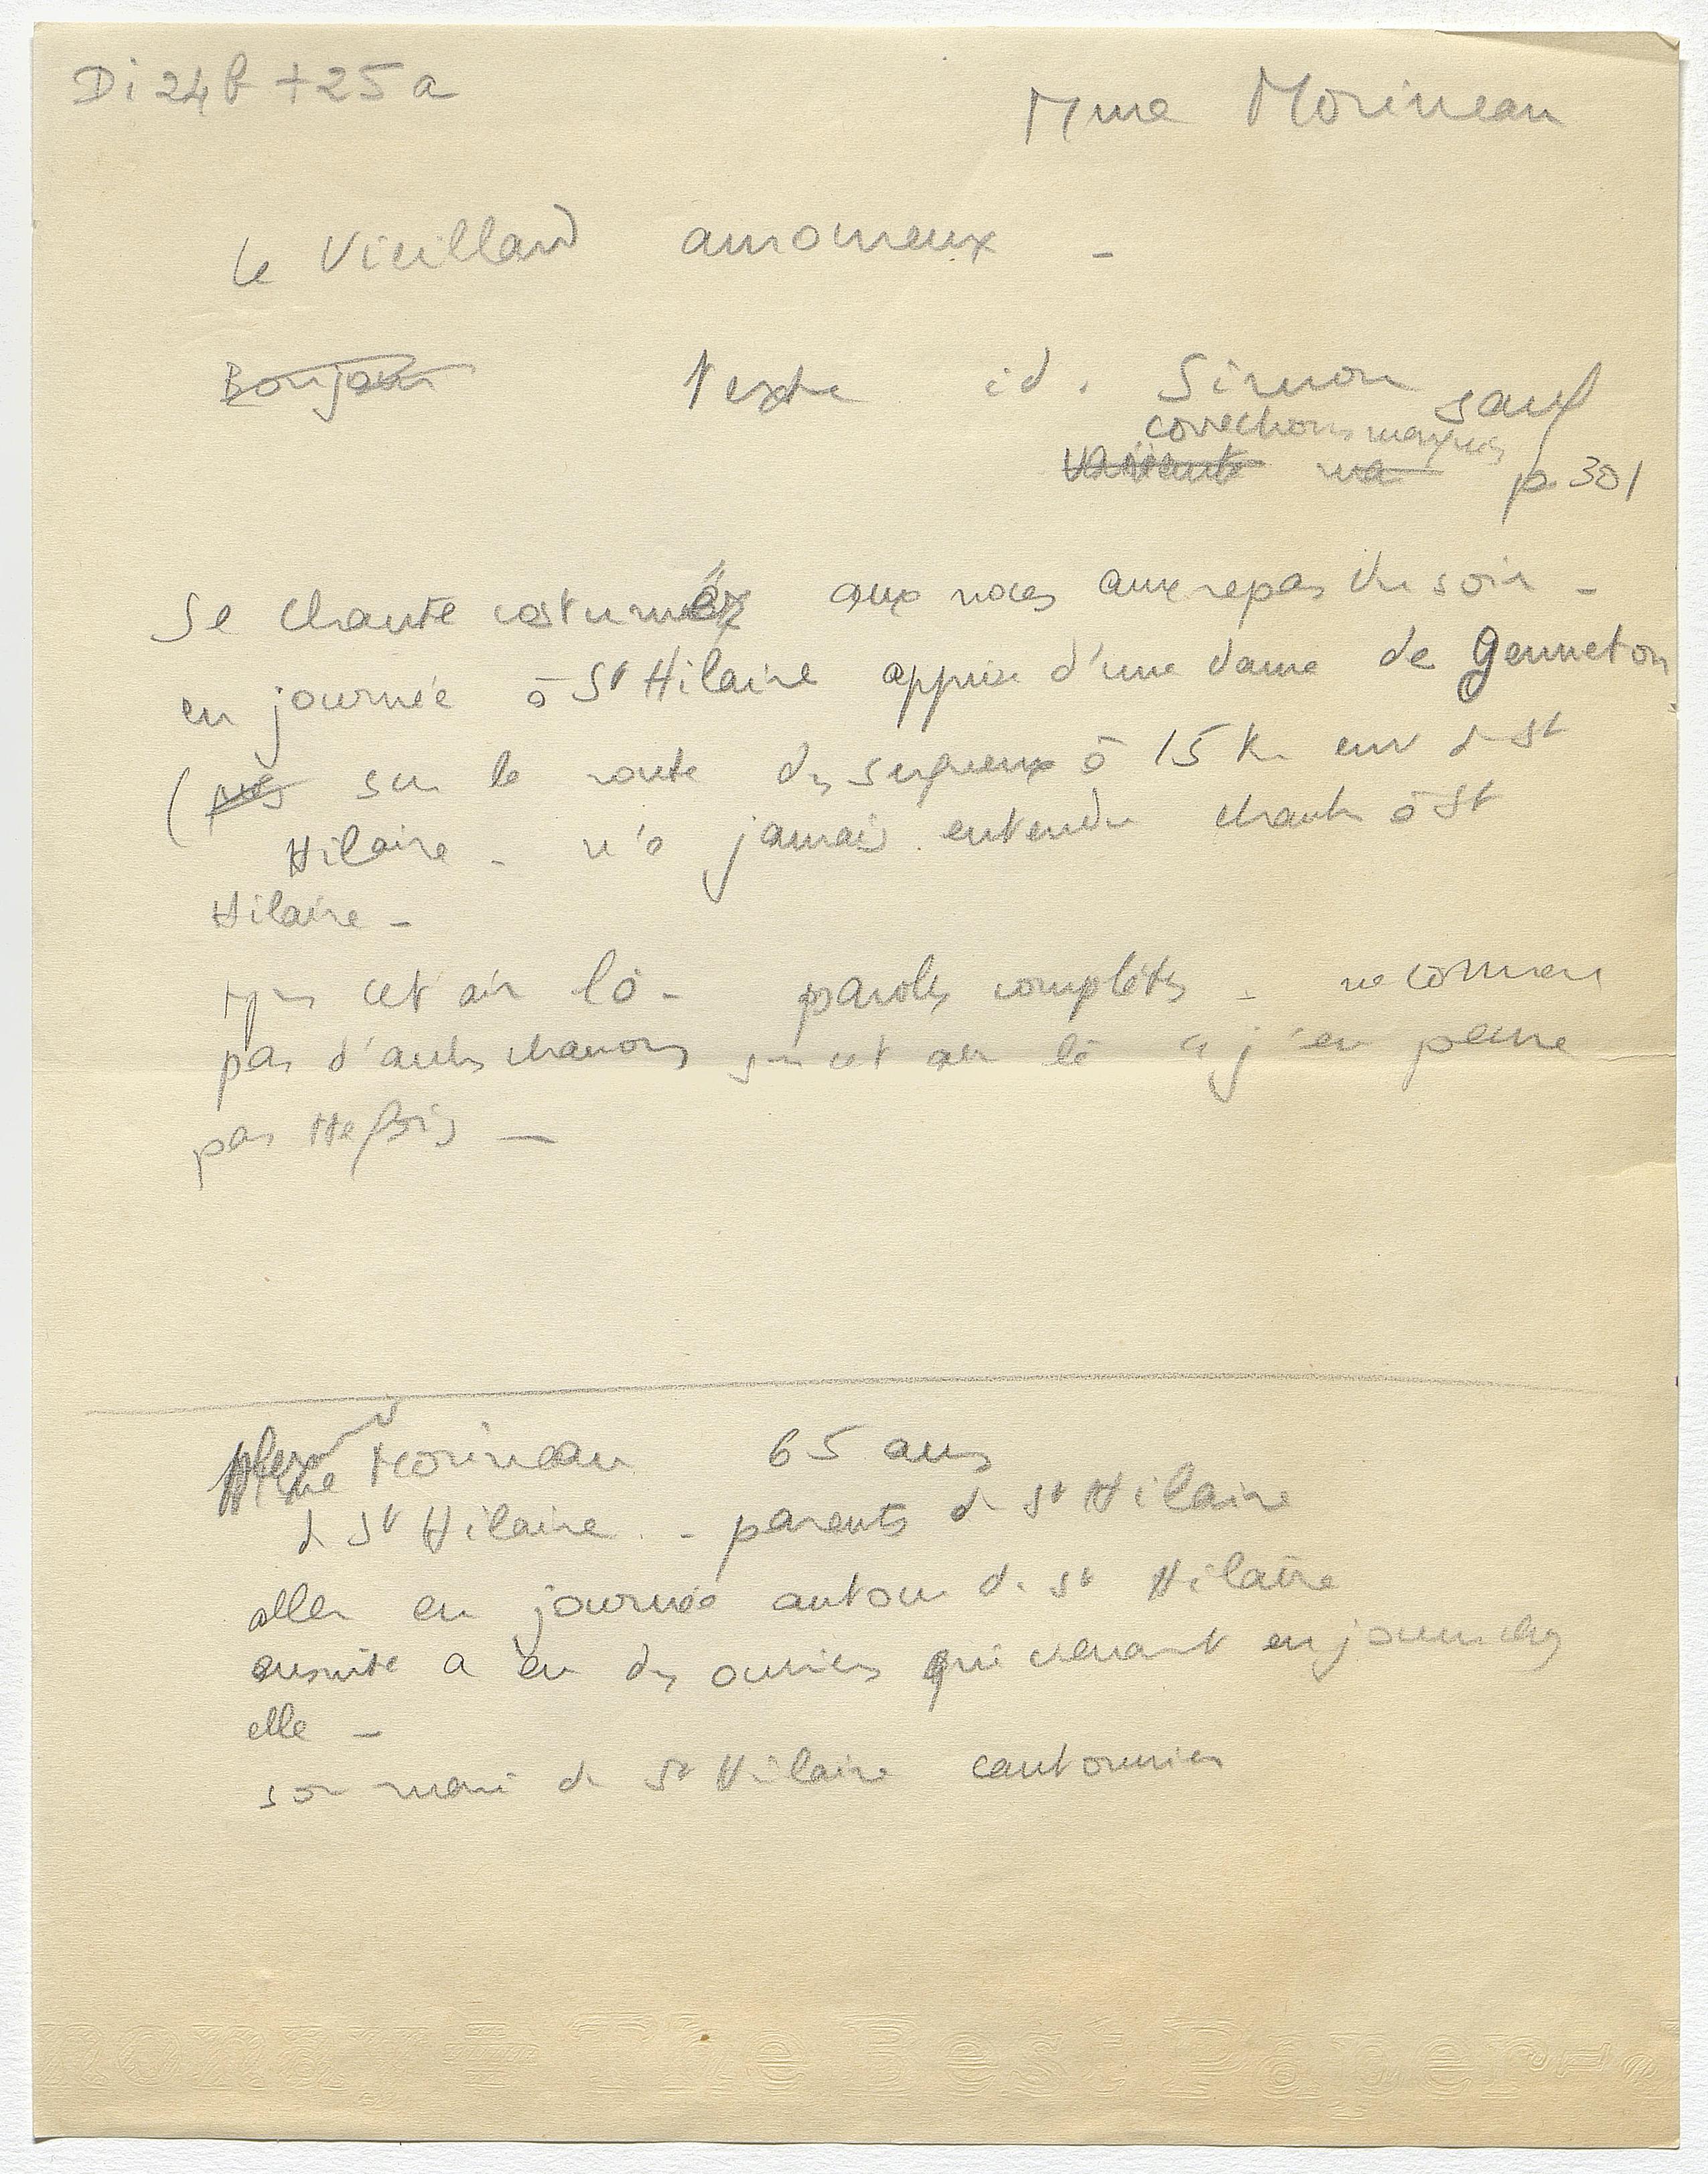 Di 24 b + 25 a
Mme Morineau
Le Vieillard amoureux -
Bonjour Texte id. Simon sauf
corrections marquées
variante ma p 301
Se chante costumé aux noces aux repas du soir -
en journée à St Hilaire apprise d'une dame de Genneton
( sur la route de à 15 k env de St
Hilaire - n'a jamais entendu chanter à St
Hilaire -
cet air là - paroles complètes - ne connait
pas d'autres chansons sur cet air là "j'en pense
pas
Morineau 65 ans
de St Hilaire - parents de St Hilaire
aller en journée autour de St Hilaire
ensuite a eu des ouvriers qui venaient en journée chez
elle -
son mari de St Hilaire cantonnier